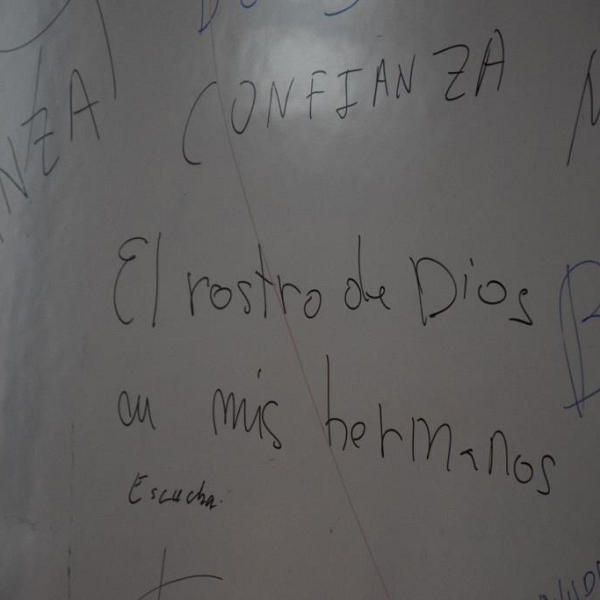 CONFIANZA
El rostro de Dios
en mis hermanos
Escucha.